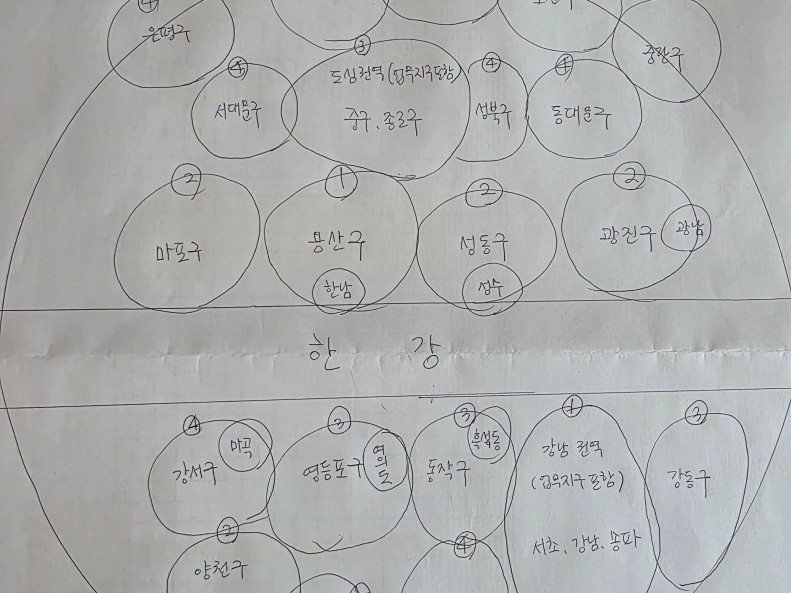 ④
은평구
중랑구
④
서대문구
③
도심권역(업무지구포함)
중구, 종로구
④
성북구
④
동대문구
②
마포구
①
용산구
한남
②
성동구
성수
②
광진구
광남
한 강
④
강서구
마곡
③
영등포구
여의도
③
동작구
흑석동
①
강남 권역
(업무지구 포함)
서초, 강남, 송파
③
강동구
②
양천구
④